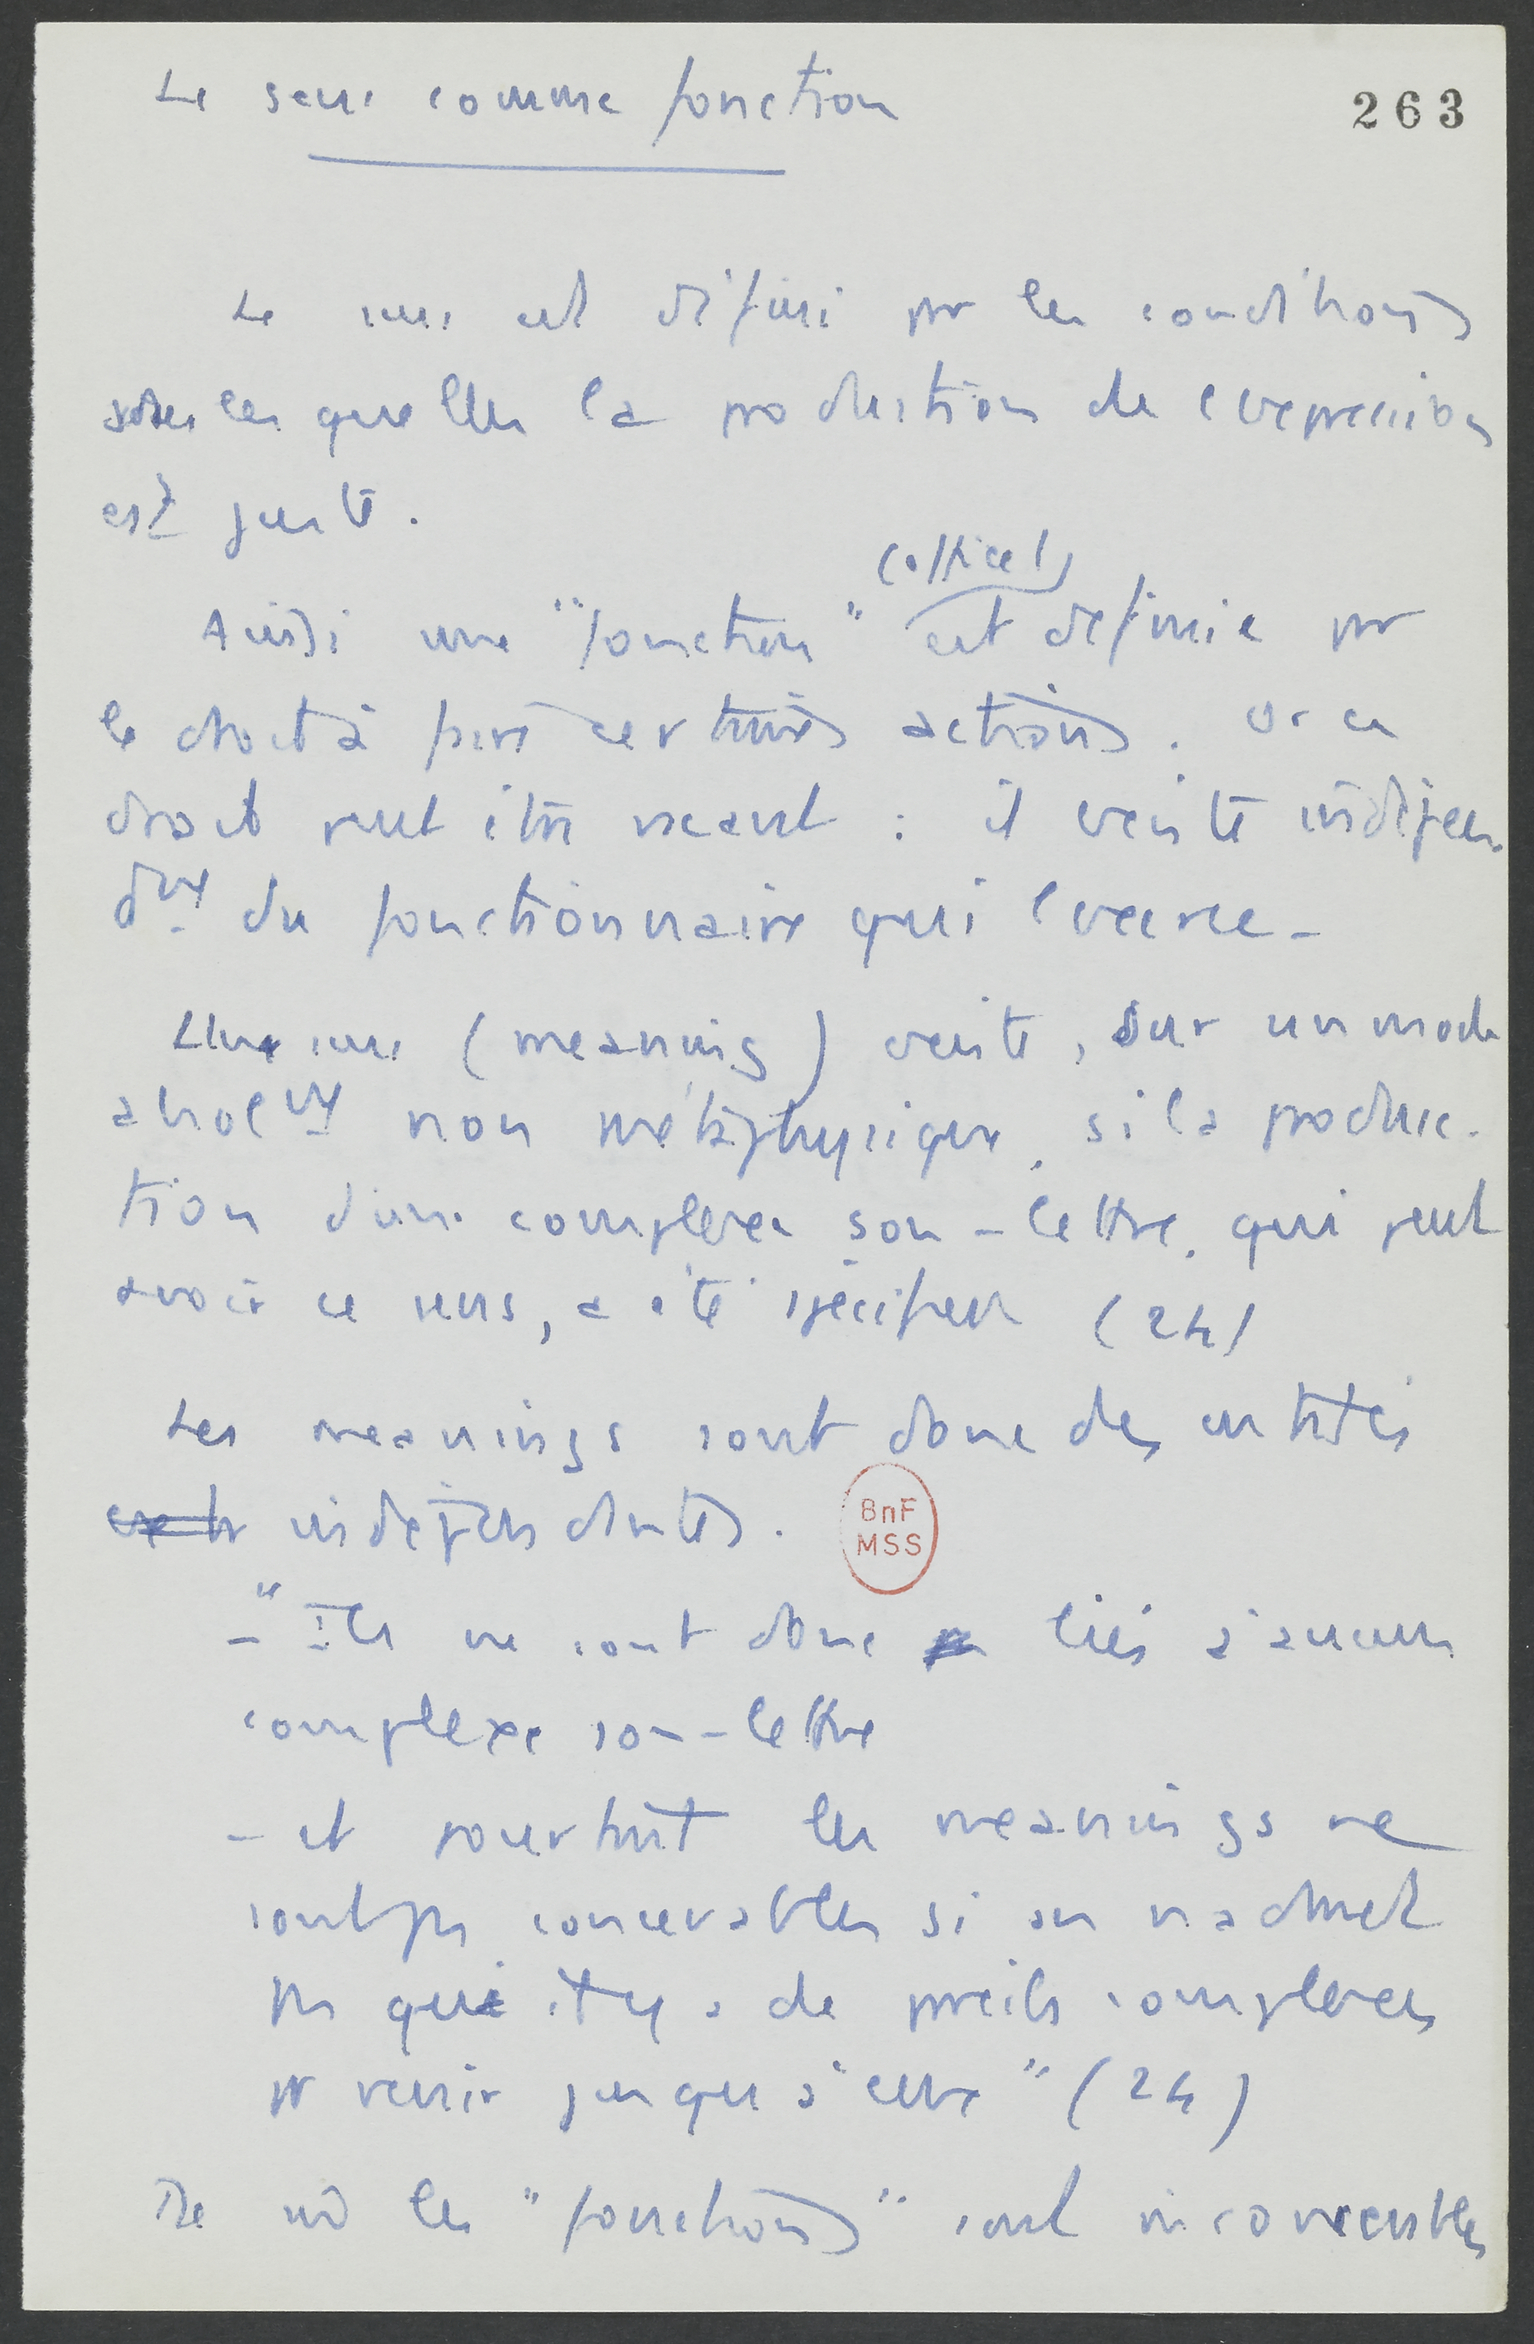 Le sens comme fonction
263
Le sens est défini par les conditions
dans lesquelles la production de l'expression
est juste.
(office)
Ainsi une "fonction" est définie par
le droit à faire certaines actions. Or ce
droit peut être vacant : il existe indépen-
dmt du fonctionnaire qui l'exerce -
Un sens (meaning) existe, sur un mode
absolmt non métaphysique, si la produc-
tion d'un complexe son-lettre, qui peut
avoir ce sens, a été spécifiée (24)
Les meanings sont donc des entités
indépendantes.
BnF
MSS
- "Ils ne sont donc liés à aucun
complexe son-lettre
- et pourtant les meanings ne
sont pas concevables si on n'admet
pas qu'il y a de pareils complexes
pr venir jusqu'à eux" (24)
De m̂ les "fonctions" sont inconcevables